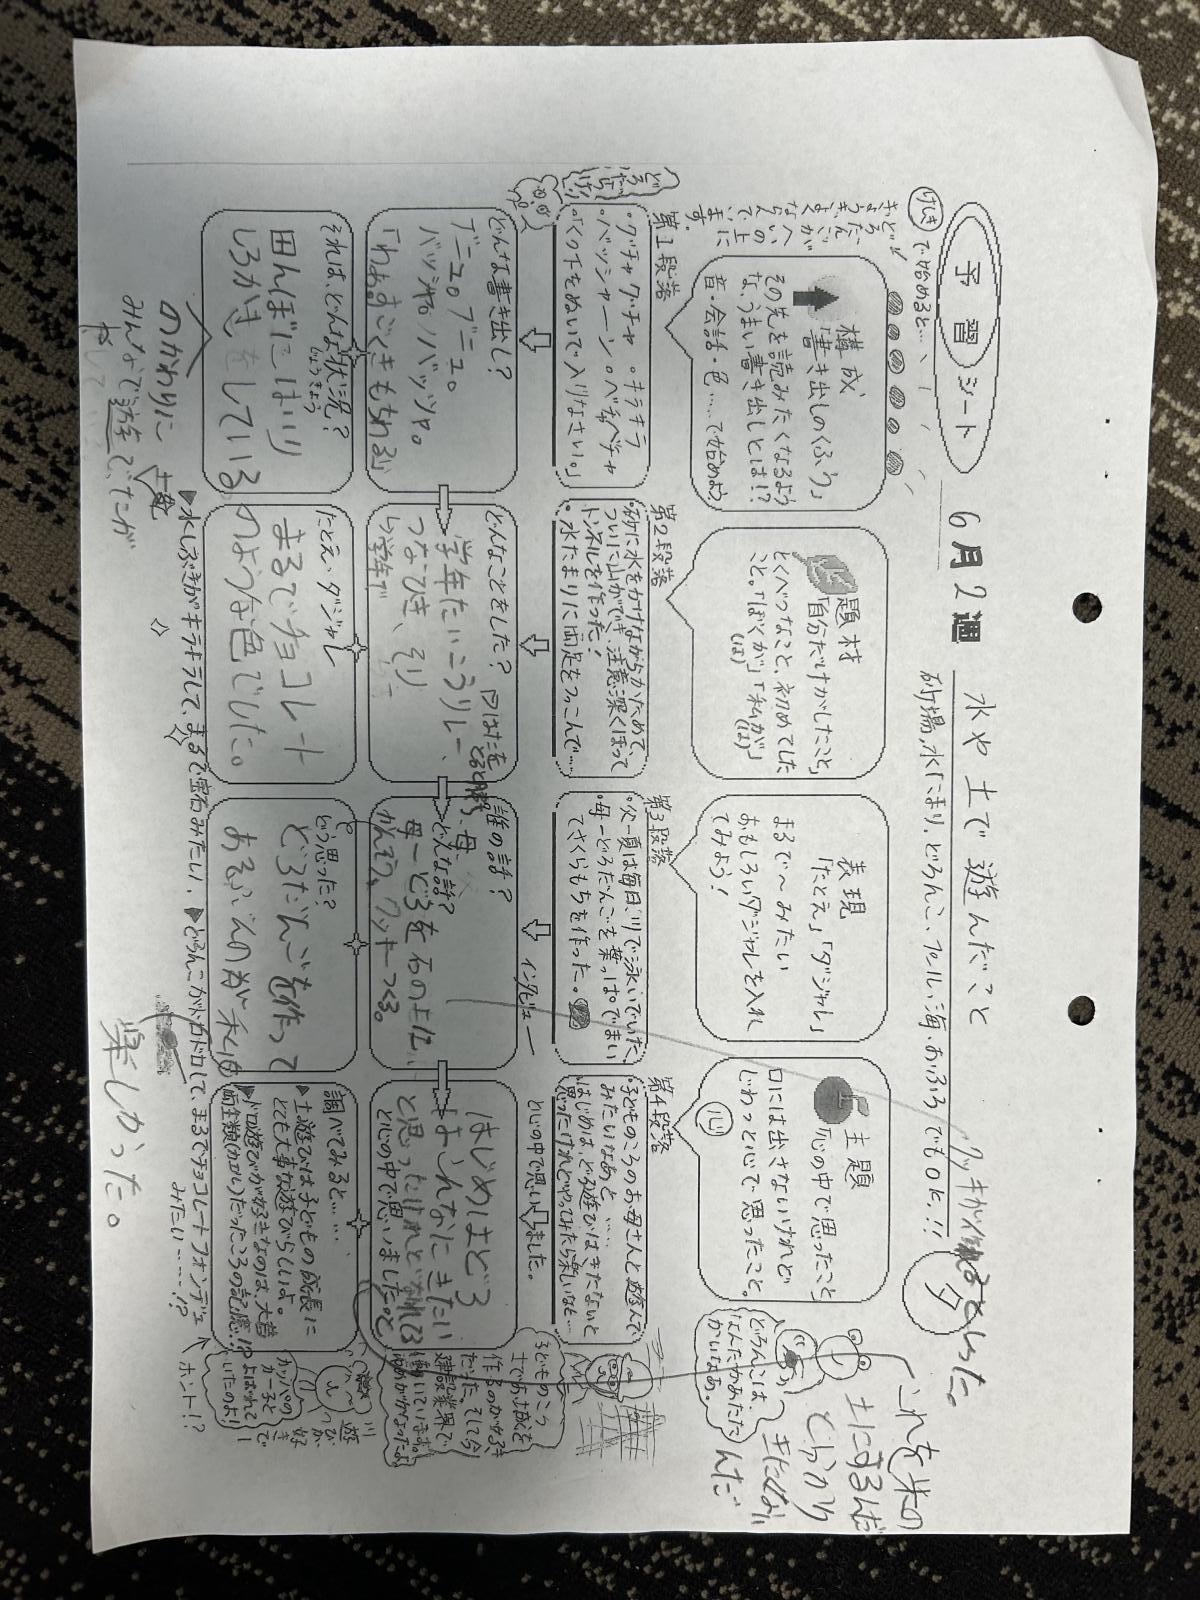 予習シート
6月2週
水や土で遊んだこと
砂場、水たまり、どろんこ、プール、海、おふろでもOK!!
夕
けしきで始めると…
どろだんごが
ぎょうぎよく
へいの上に
ならんでいます。
構成
「書き出しのくふう」
その先を読みたくなるよう
な、うまい書き出しとは!?
音・会話・色……で始めよう
題材
「自分だけがしたこと」
とくべつなこと、初めてした
こと。「ぼくが」「私が」
(は) (は)
表現
「たとえ」「ダジャレ」
まるで〜みたい
おもしろいダジャレを入れ
てみよう!
主題
「心の中で思ったこと」
口には出さないけれど
じわっと心で思ったこと。
心
どろんこは、
なんだかあたた
かいなあ。
これを米の
土にするんだ
どうか
きたない
んだ
第1段落
・グチャグチャ・キラキラ
・バッシャーン・ベチャベチャ
・「くつ下をぬいで入りなさい。」
どろ
だらけ
第2段落
・砂に水をかけながらかためて、
ついに山ができ、注意深くほって
トンネルを作った!
・水たまりに両足をつっこんで…
第3段落
・父―夏は毎日、川で泳いでいた。
・母―どろだんごを葉っぱでまい
てさくらもちを作った。
第4段落
・子どものころのお母さんと遊んで
みたいなあと……
・はじめは、どろ遊びはきたないと
思ったけれどやってみたら楽しいな…
と心の中で思いました。
どんな書き出し?
ブニュ。ブニュ。
バッシャ。バッシャ。
「わぁすごくきもちわる」
どんなことをした?
学年たいこうリレー、
つなひき、そり
誰の話?
母
どんな話?
インタビュー
母―どろを石の上に
かんそう、クッキーつくる。
はじめはどろ
はこんなにきたい
と思ったけれど
と心の中で思いました。
子どものころ
土でお城を
作るのが好き
だった。そして今
建設業界で
働いています。
ゆめがかなったよ
それは、どんな状況?
じょうきょう
田んぼにはいり
しろかきをしている
たとえ・ダジャレ
まるでチョコレート
のような色でした。
どう思った?
どろだんごを作って
あそぶのが
調べてみると……
▶土遊びは子どもの成長に
とても大事な遊びらしいよ。
▶ドロ遊びが好きなのは、大昔
両生類(カエル)だったころの記憶!?
川
遊
びが
好き
で
カッパの
カーろと
よばれて
いたのよ!
▶水しぶきがキラキラして、まるで宝石みたい。
▶どろんこがドロドロして、まるでチョコレートフォンデュ
みたい……!?
ホント!?
のかわりに
みんなで遊んでたが
楽しかった。